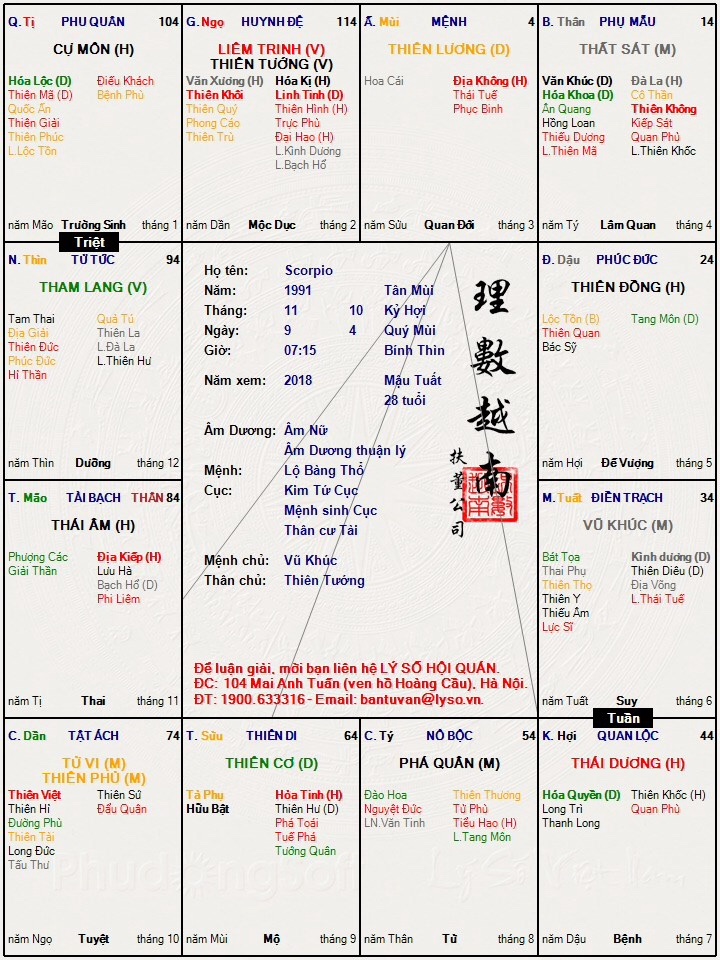 Q. Tị PHU QUÂN 104
CỰ MÔN (H)
Hóa Lộc (D) Điếu Khách
Thiên Mã (D) Bệnh Phù
Quốc Ấn
Thiên Giải
Thiên Phúc
L.Lộc Tồn
năm Mão Trường Sinh tháng 1
G. Ngọ HUYNH ĐỆ 114
LIÊM TRINH (V)
THIÊN TƯỚNG (V)
Văn Xương (H) Hóa Kị (H)
Thiên Khôi Linh Tinh (D)
Thiên Quý Thiên Hình (H)
Phong Cáo Trực Phù
Thiên Trù Đại Hao (H)
L.Kình Dương
L.Bạch Hổ
năm Dần Mộc Dục tháng 2
Ấ. Mùi MỆNH 4
THIÊN LƯƠNG (D)
Hoa Cái Địa Không (H)
Thái Tuế
Phục Binh
năm Sửu Quan Đới tháng 3
B. Thân PHỤ MẪU 14
THẤT SÁT (M)
Văn Khúc (D) Đà La (H)
Hóa Khoa (D) Cô Thần
Ân Quang Thiên Không
Hồng Loan Kiếp Sát
Thiếu Dương Quan Phủ
L.Thiên Mã L.Thiên Khốc
năm Tý Lâm Quan tháng 4
Triệt
N. Thìn TỬ TỨC 94
THAM LANG (V)
Tam Thai Quả Tú
Địa Giải Thiên La
Thiên Đức L.Đà La
Phúc Đức L.Thiên Hư
Hỉ Thần
năm Thìn Dưỡng tháng 12
Họ tên: Scorpio
Năm: 1991 Tân Mùi
Tháng: 11 10 Kỷ Hợi
Ngày: 9 4 Quý Mùi
Giờ: 07:15 Bính Thìn
Năm xem: 2018 Mậu Tuất
28 tuổi
Âm Dương: Âm Nữ
Âm Dương thuận lý
Mệnh: Lộ Bàng Thổ
Cục: Kim Tứ Cục
Mệnh sinh Cục
Thân cư Tài
Mệnh chủ: Vũ Khúc
Thân chủ: Thiên Tướng
理數越南
扶董公司
Để luận giải, mời bạn liên hệ LÝ SỐ HỘI QUÁN.
ĐC: 104 Mai Anh Tuấn (ven hồ Hoàng Cầu), Hà Nội.
ĐT: 1900.633316 - Email: bantuvan@lyso.vn.
Đ. Dậu PHÚC ĐỨC 24
THIÊN ĐỒNG (H)
Lộc Tồn (B) Tang Môn (D)
Thiên Quan
Bác Sỹ
năm Hợi Đế Vượng tháng 5
T. Mão TÀI BẠCH THÂN 84
THÁI ÂM (H)
Phượng Các Địa Kiếp (H)
Giải Thần Lưu Hà
Bạch Hổ (D)
Phi Liêm
năm Tị Thai tháng 11
M. Tuất ĐIỀN TRẠCH 34
VŨ KHÚC (M)
Bát Tọa Kình dương (D)
Thai Phụ Thiên Diêu (D)
Thiên Thọ Địa Võng
Thiên Y L.Thái Tuế
Thiếu Âm
Lực Sĩ
năm Tuất Suy tháng 6
Tuần
C. Dần TẬT ÁCH 74
TỬ VI (M)
THIÊN PHỦ (M)
Thiên Việt Thiên Sứ
Thiên Hỉ Đẩu Quân
Đường Phù
Thiên Tài
Long Đức
Tấu Thư
năm Ngọ Tuyệt tháng 10
T. Sửu THIÊN DI 64
THIÊN CƠ (D)
Tả Phụ Hỏa Tinh (H)
Hữu Bật Thiên Hư (D)
Phá Toái
Tuế Phá
Tướng Quân
năm Mùi Mộ tháng 9
C. Tý NÔ BỘC 54
PHÁ QUÂN (M)
Đào Hoa Thiên Thương
Nguyệt Đức Tử Phù
LN.Văn Tinh Tiểu Hao (H)
L.Tang Môn
năm Thân Tử tháng 8
K. Hợi QUAN LỘC 44
THÁI DƯƠNG (H)
Hóa Quyền (D) Thiên Khốc (H)
Long Trì Quan Phù
Thanh Long
năm Dậu Bệnh tháng 7